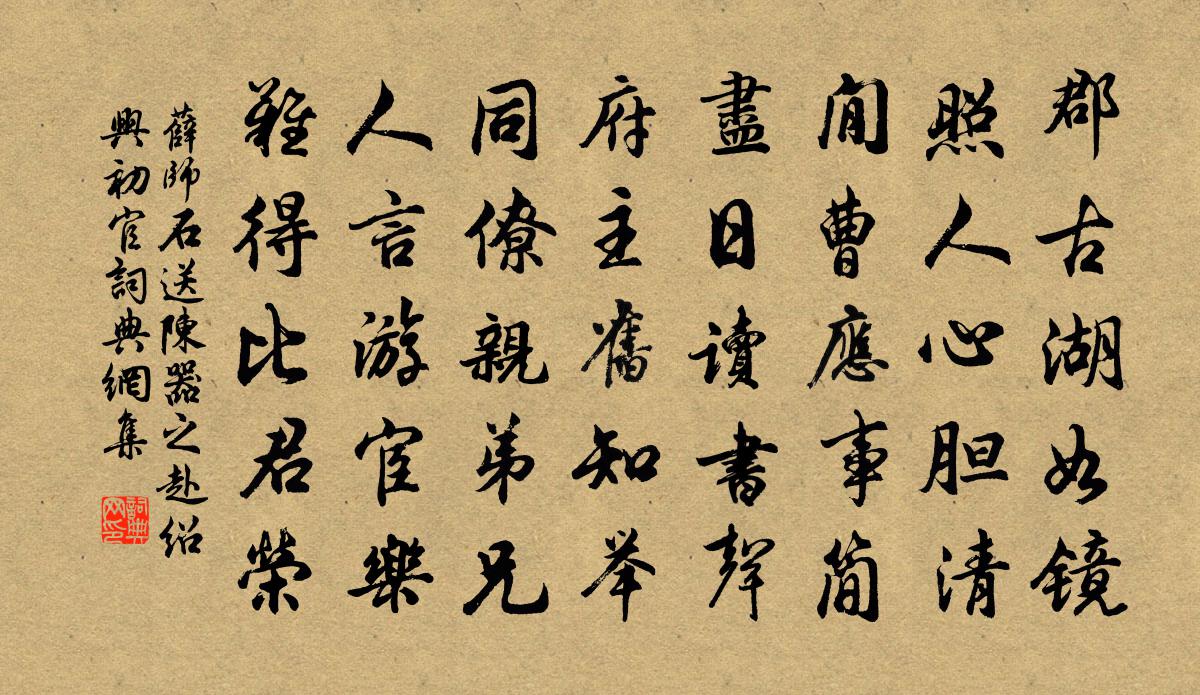 郡古湖如镜
照人心胆清
閒曹應事简
盡日讀書聲
府主舊知举
同僚親弟兄
人言游宦樂
難得比君榮
薛師石送陳器之赴绍
興初官詞典網集
詞典
网印